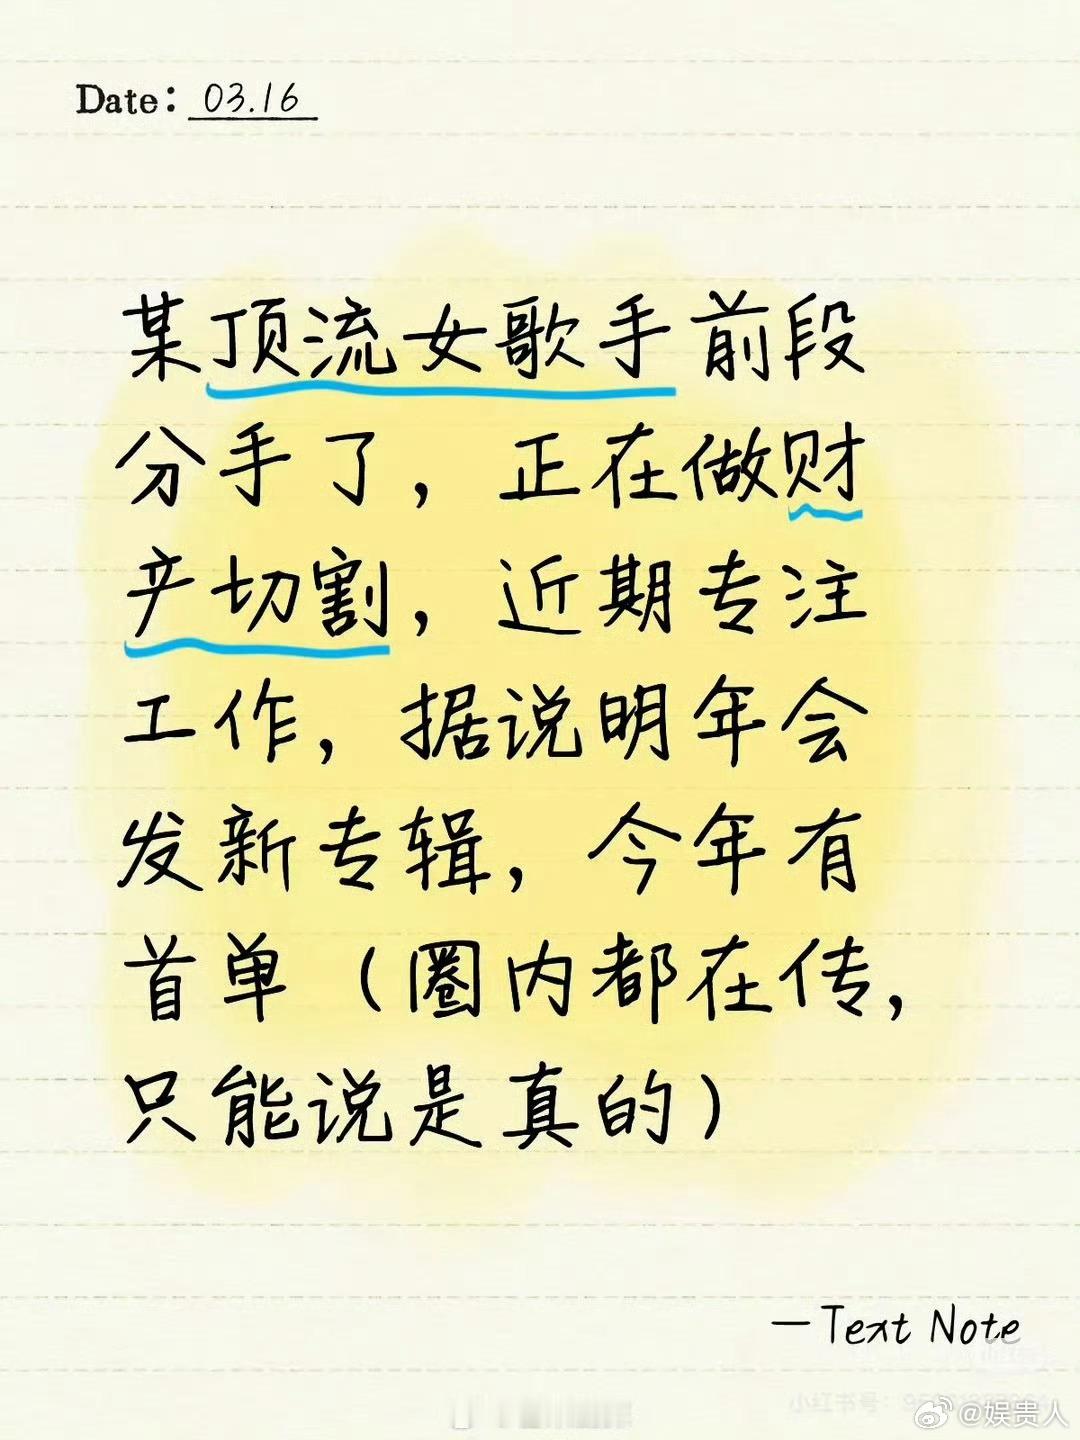 Date: 03.16
某顶流女歌手前段
分手了，正在做财
产切割，近期专注
工作，据说明年会
发新专辑，今年有
首单（圈内都在传，
只能说是真的）
—Text Note
小红书号：
@娱贵人